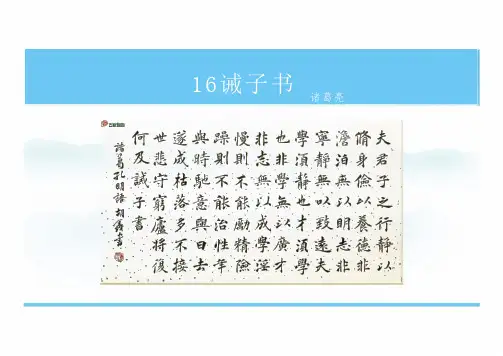 16诫子书
诸葛亮
夫君子之行靜以
脩身儉以養德非
澹泊無以明志非
寧靜無以致遠夫
學須靜也才須學
也非學無以廣才
非志無以成學淫
慢則不能勵精險
躁則不能治性年
與時馳意與日去
遂成枯落多不接
世悲守窮廬將復
何及誡子書
諸葛孔明語 胡 書